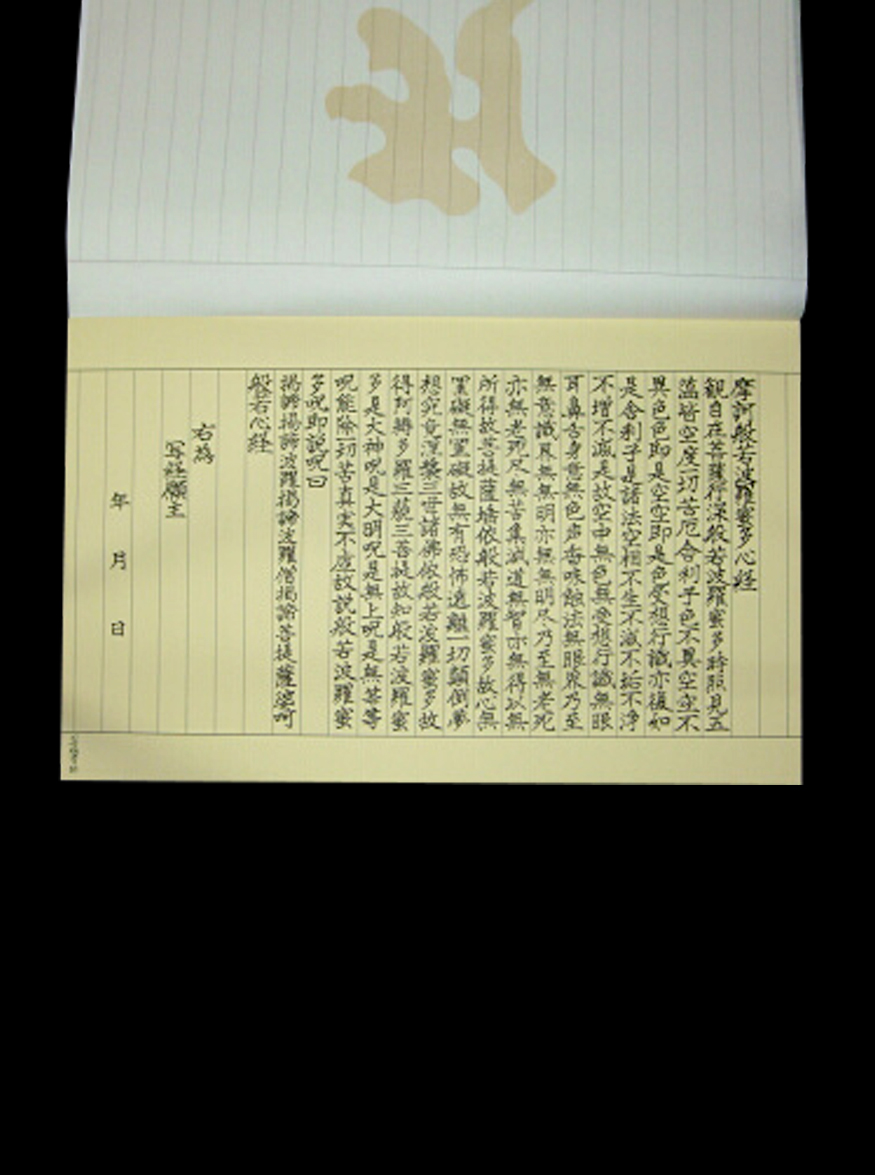 摩訶般若波羅蜜多心経
観自在菩薩行深般若波羅蜜多時照見五
蘊皆空度一切苦厄舎利子色不異空空不
異色色即是空空即是色受想行識亦復如
是舎利子是諸法空相不生不滅不垢不浄
不増不減是故空中無色無受想行識無眼
耳鼻舌身意無色声香味触法無眼界乃至
無意識界無無明亦無無明尽乃至無老死
亦無老死尽無苦集滅道無智亦無得以無
所得故菩提薩埵依般若波羅蜜多故心無
罣礙無罣礙故無有恐怖遠離一切顛倒夢
想究竟涅槃三世諸佛依般若波羅蜜多故
得阿耨多羅三藐三菩提故知般若波羅蜜
多是大神呪是大明呪是無上呪是無等等
呪能除一切苦真実不虚故説般若波羅蜜
多呪即説呪曰
掲諦掲諦波羅掲諦波羅僧掲諦菩提薩婆呵
般若心経
右為
写経願主
年 月 日